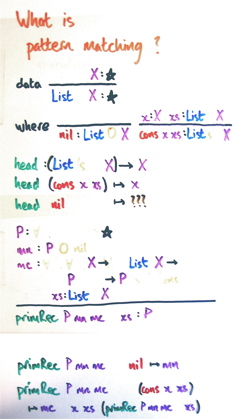 What is
pattern matching ?
data X : ★
List X : ★
where x : X xs : List X
nil : List X cons x xs : List X
head : (List X) → X
head (cons x xs) ↦ x
head nil ↦ ???
P : ★
mn : P
mc : X → List X →
P → P
xs : List X
primRec P mn mc xs : P
primRec P mn mc nil ↦ mn
primRec P mn mc (cons x xs)
↦ mc x xs (primRec P mn mc xs)